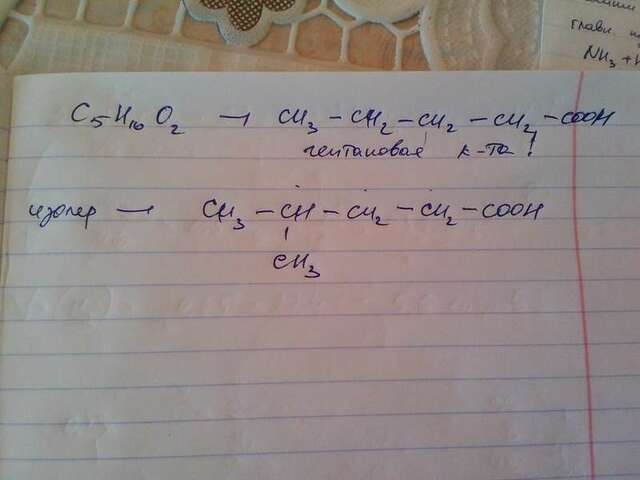 главн.
NH₃ + H
C₅H₁₀O₂ → CH₃ – CH₂ – CH₂ – CH₂ – COOH
пентановая к-та!
изомер → CH₃ – CH – CH₂ – CH₂ – COOH
CH₃